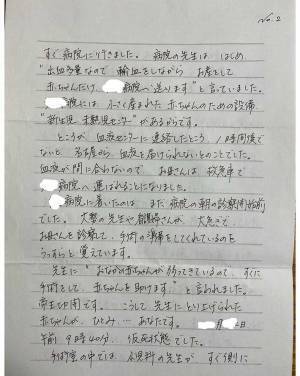 No.2
すぐ病院に行きました。病院の先生は はじめ
"出血多量なので 輸血をしながら お産をして
赤ちゃんだけ、病院へ送ります"と言っていました。
病院には 小さく産まれた赤ちゃんのための設備
"新生児 未熟児センター"があるからです。
ところが 血液センターに連絡したところ 1時間後で
ないと、名古屋から 血液を届けられないとのことでした。
血液が間に合わないので お母さんは、救急車で
病院へ 運ばれることになりました。
病院に着いたのは まだ 病院の朝の診察開始前
でした。大勢の先生や看護婦さんが 大急ぎで
お母さんを診察して、手術の準備をしてくれているのを
うっすらと 覚えています。
先生に "おなかの赤ちゃんが弱ってきているので、すぐに
手術をして、赤ちゃんを助けます"と言われました。
帝王切開です。こうして 先生にとり上げられた
赤ちゃんが、ひとみ…あなたです。 月 日
午前 9時40分、仮死状態でした。
手術室の中では、小児科の先生が すぐ側に